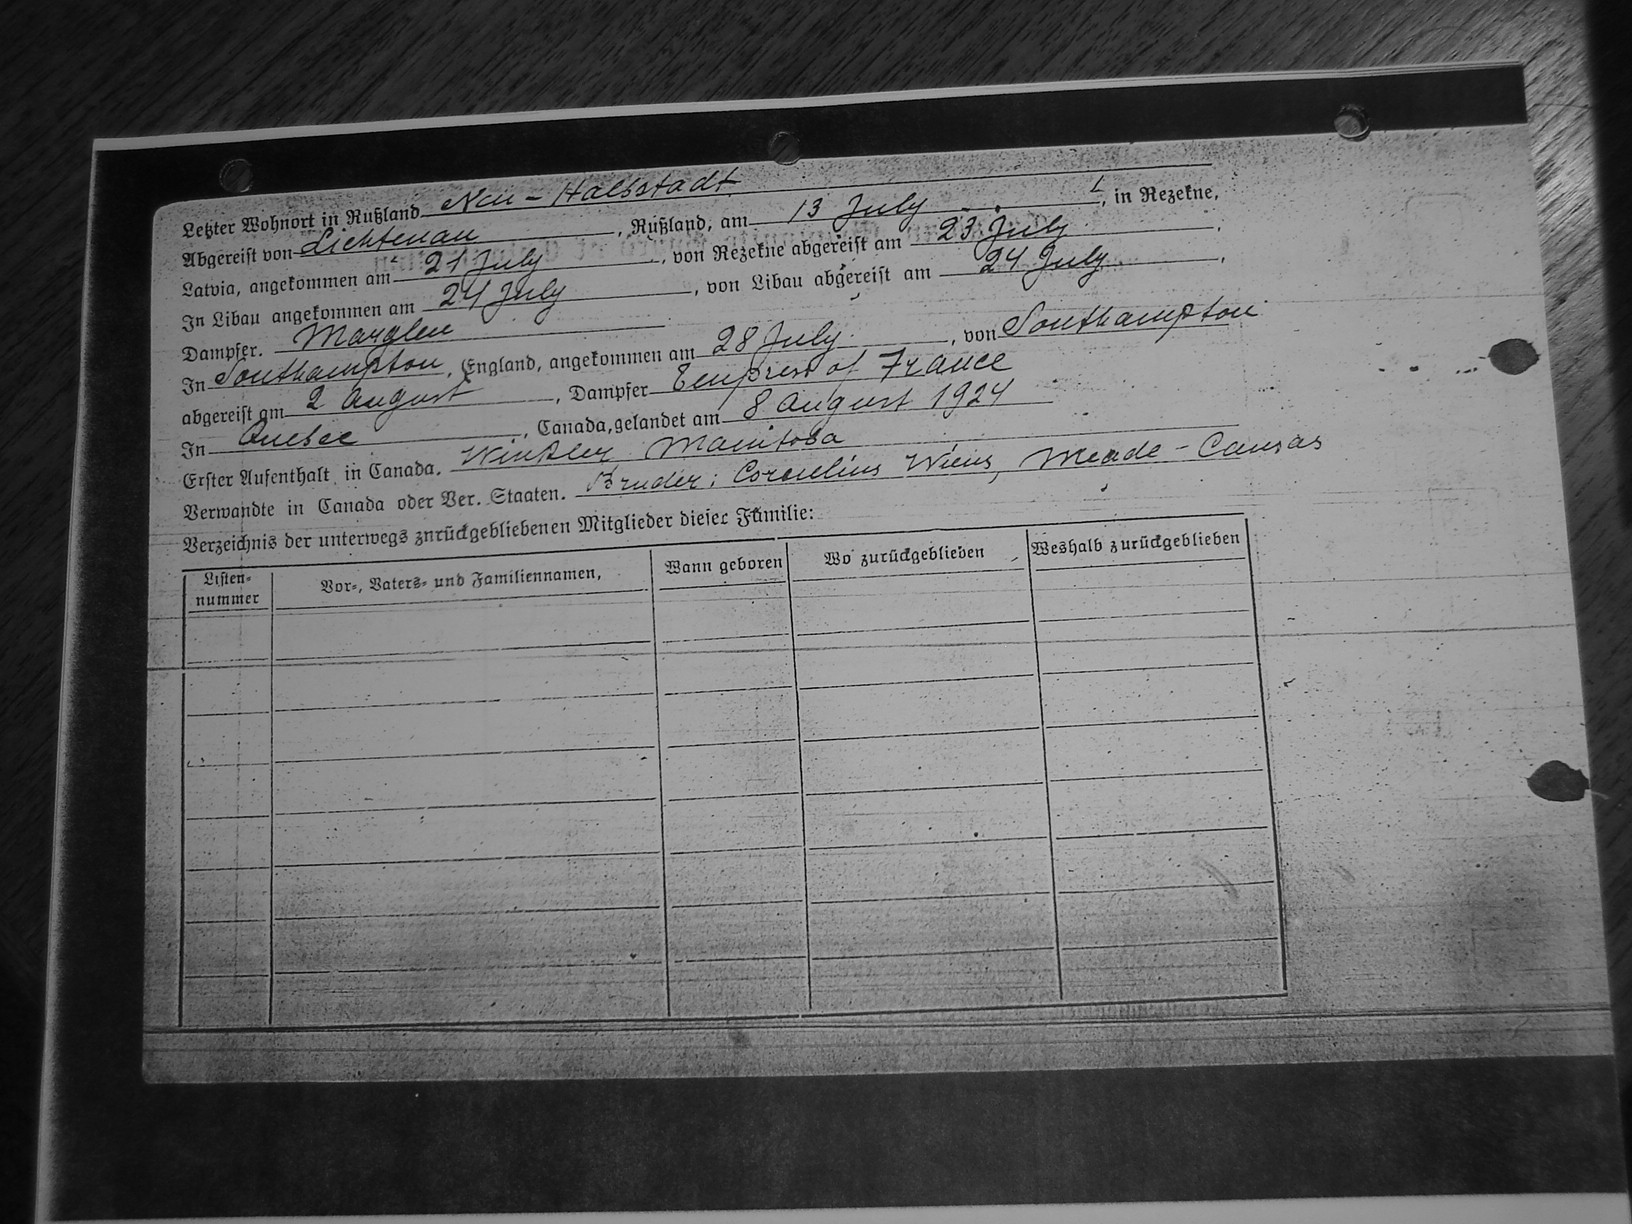 Letzter Wohnort in Rußland Neu-Halbstadt
Abgereist von Lichtenau, Rußland, am 13 July, in Rezekne,
Latvia, angekommen am 21 July, von Rezekne abgereist am 23 July.
In Libau angekommen am 24 July, von Libau abgereist am 24 July.
Dampfer. Marglen
In Southampton, England, angekommen am 28 July, von Southampton
abgereist am 2 August, Dampfer Empress of France
In Quebec, Canada, gelandet am 8 August 1924
Erster Aufenthalt in Canada. Winkler Manitoba
Verwandte in Canada oder Ver. Staaten. Bruder: Cornelius Wiens, Meade-Cansas
Verzeichnis der unterwegs znrückgebliebenen Mitglieder dieser Familie:
Listen-nummer Vor-, Vaters- und Familiennamen, Wann geboren Wo zurückgeblieben Weshalb zurückgeblieben